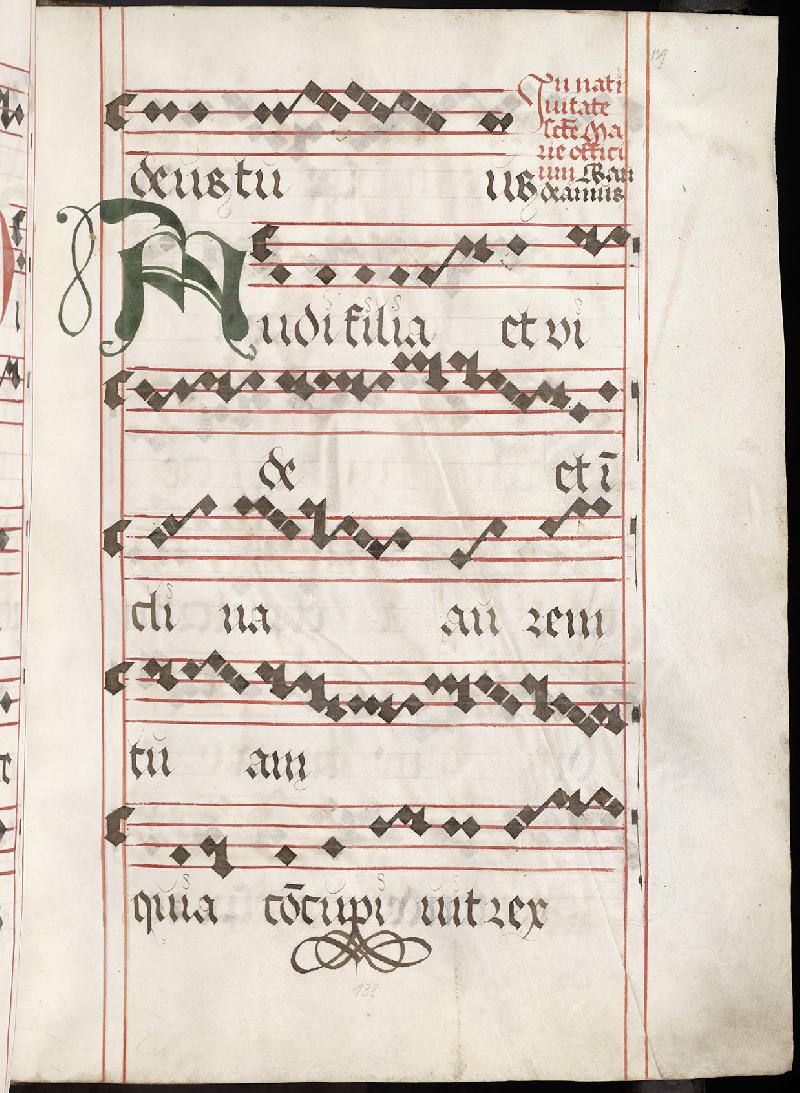 139
In nati
uitate
scte Ma
rie offici
um Gau
deamus
deus tu us
Audi filia et vi
de et ī
cli na aū rem
tū am
quia cōcupi uit rex
138